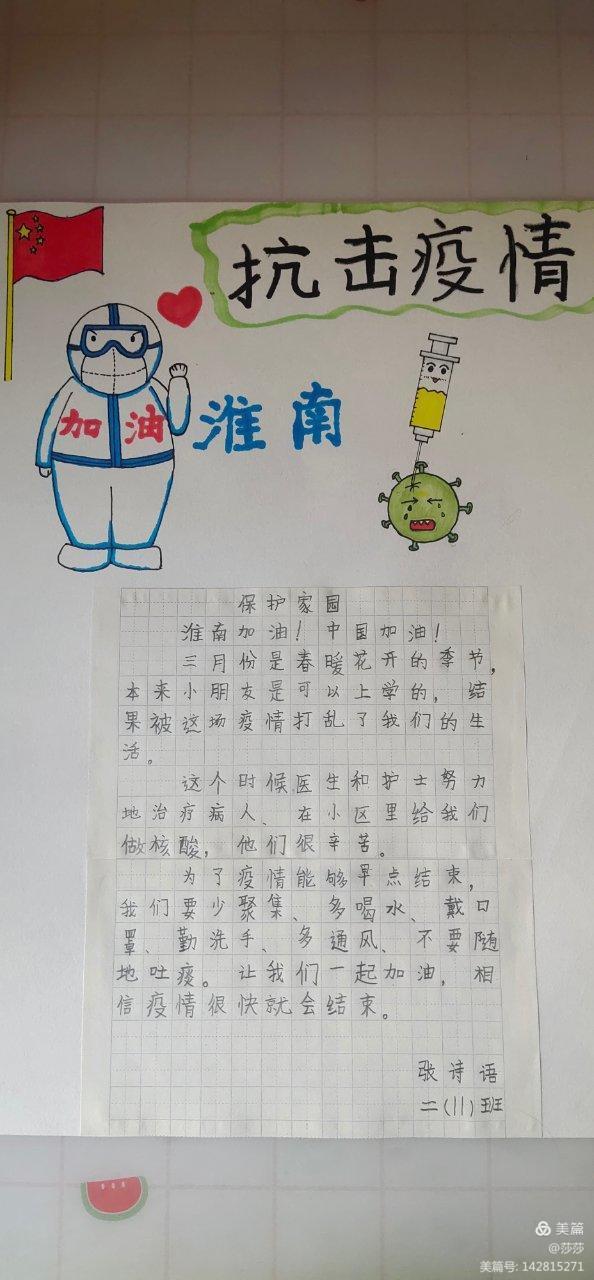 抗击疫情
加油
淮南
保护家园
淮南加油！中国加油！
三月份是春暖花开的季节，
本来小朋友是可以上学的，结
果被这场疫情打乱了我们的生
活。
这个时候医生和护士努力
地治疗病人、在小区里给我们
做核酸，他们很辛苦。
为了疫情能够早点结束，
我们要少聚集、多喝水、戴口
罩、勤洗手、多通风、不要随
地吐痰。让我们一起加油，相
信疫情很快就会结束。
张诗语
二(11)班
美篇
@莎莎
美篇号: 142815271